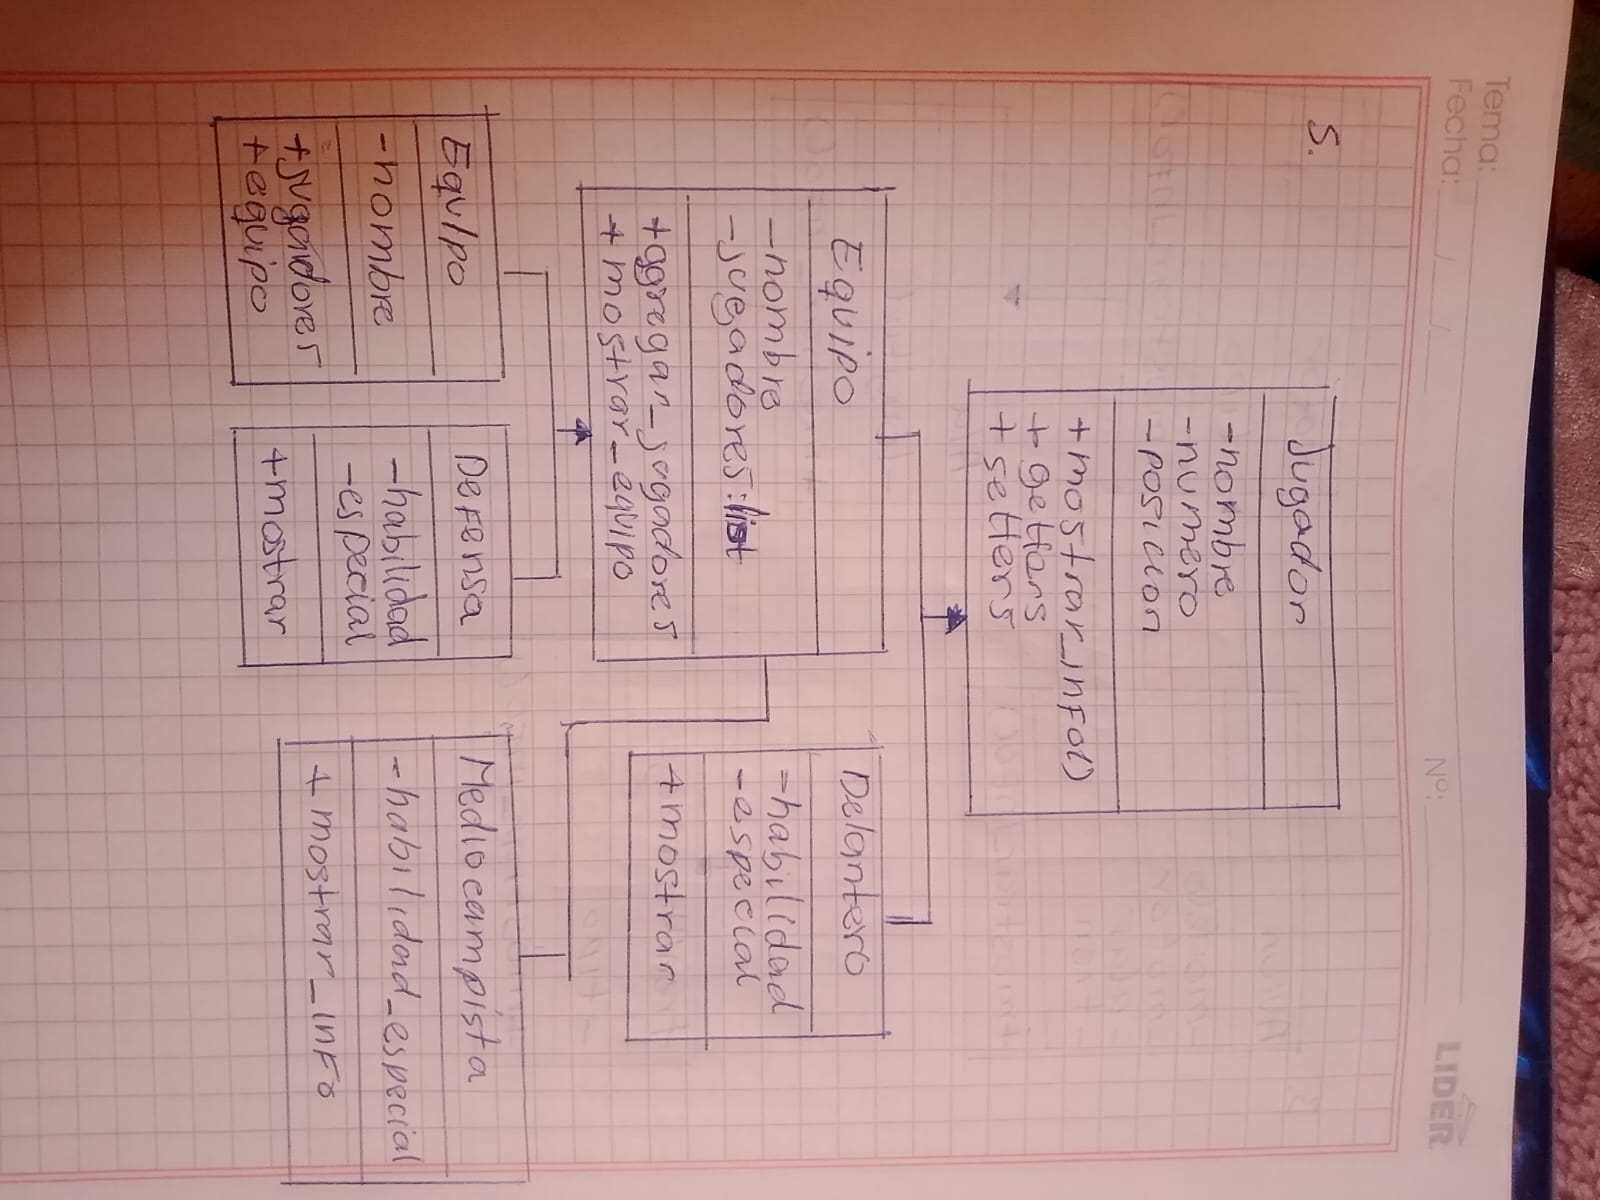 Tema:
Fecha: / /
Nº:
LIDER
5.
Jugador
-nombre
-numero
-posicion
+mostrar_info()
+gettars
+setters
Equipo
-nombre
-jugadores:list
+agregar_jugadores
+mostrar_equipo
Delantero
-habilidad
-especial
+mostrar
Equipo
-nombre
+jugadores
+equipo
Defensa
-habilidad
-especial
+mostrar
Mediocampista
-habilidad_especial
+mostrar_info